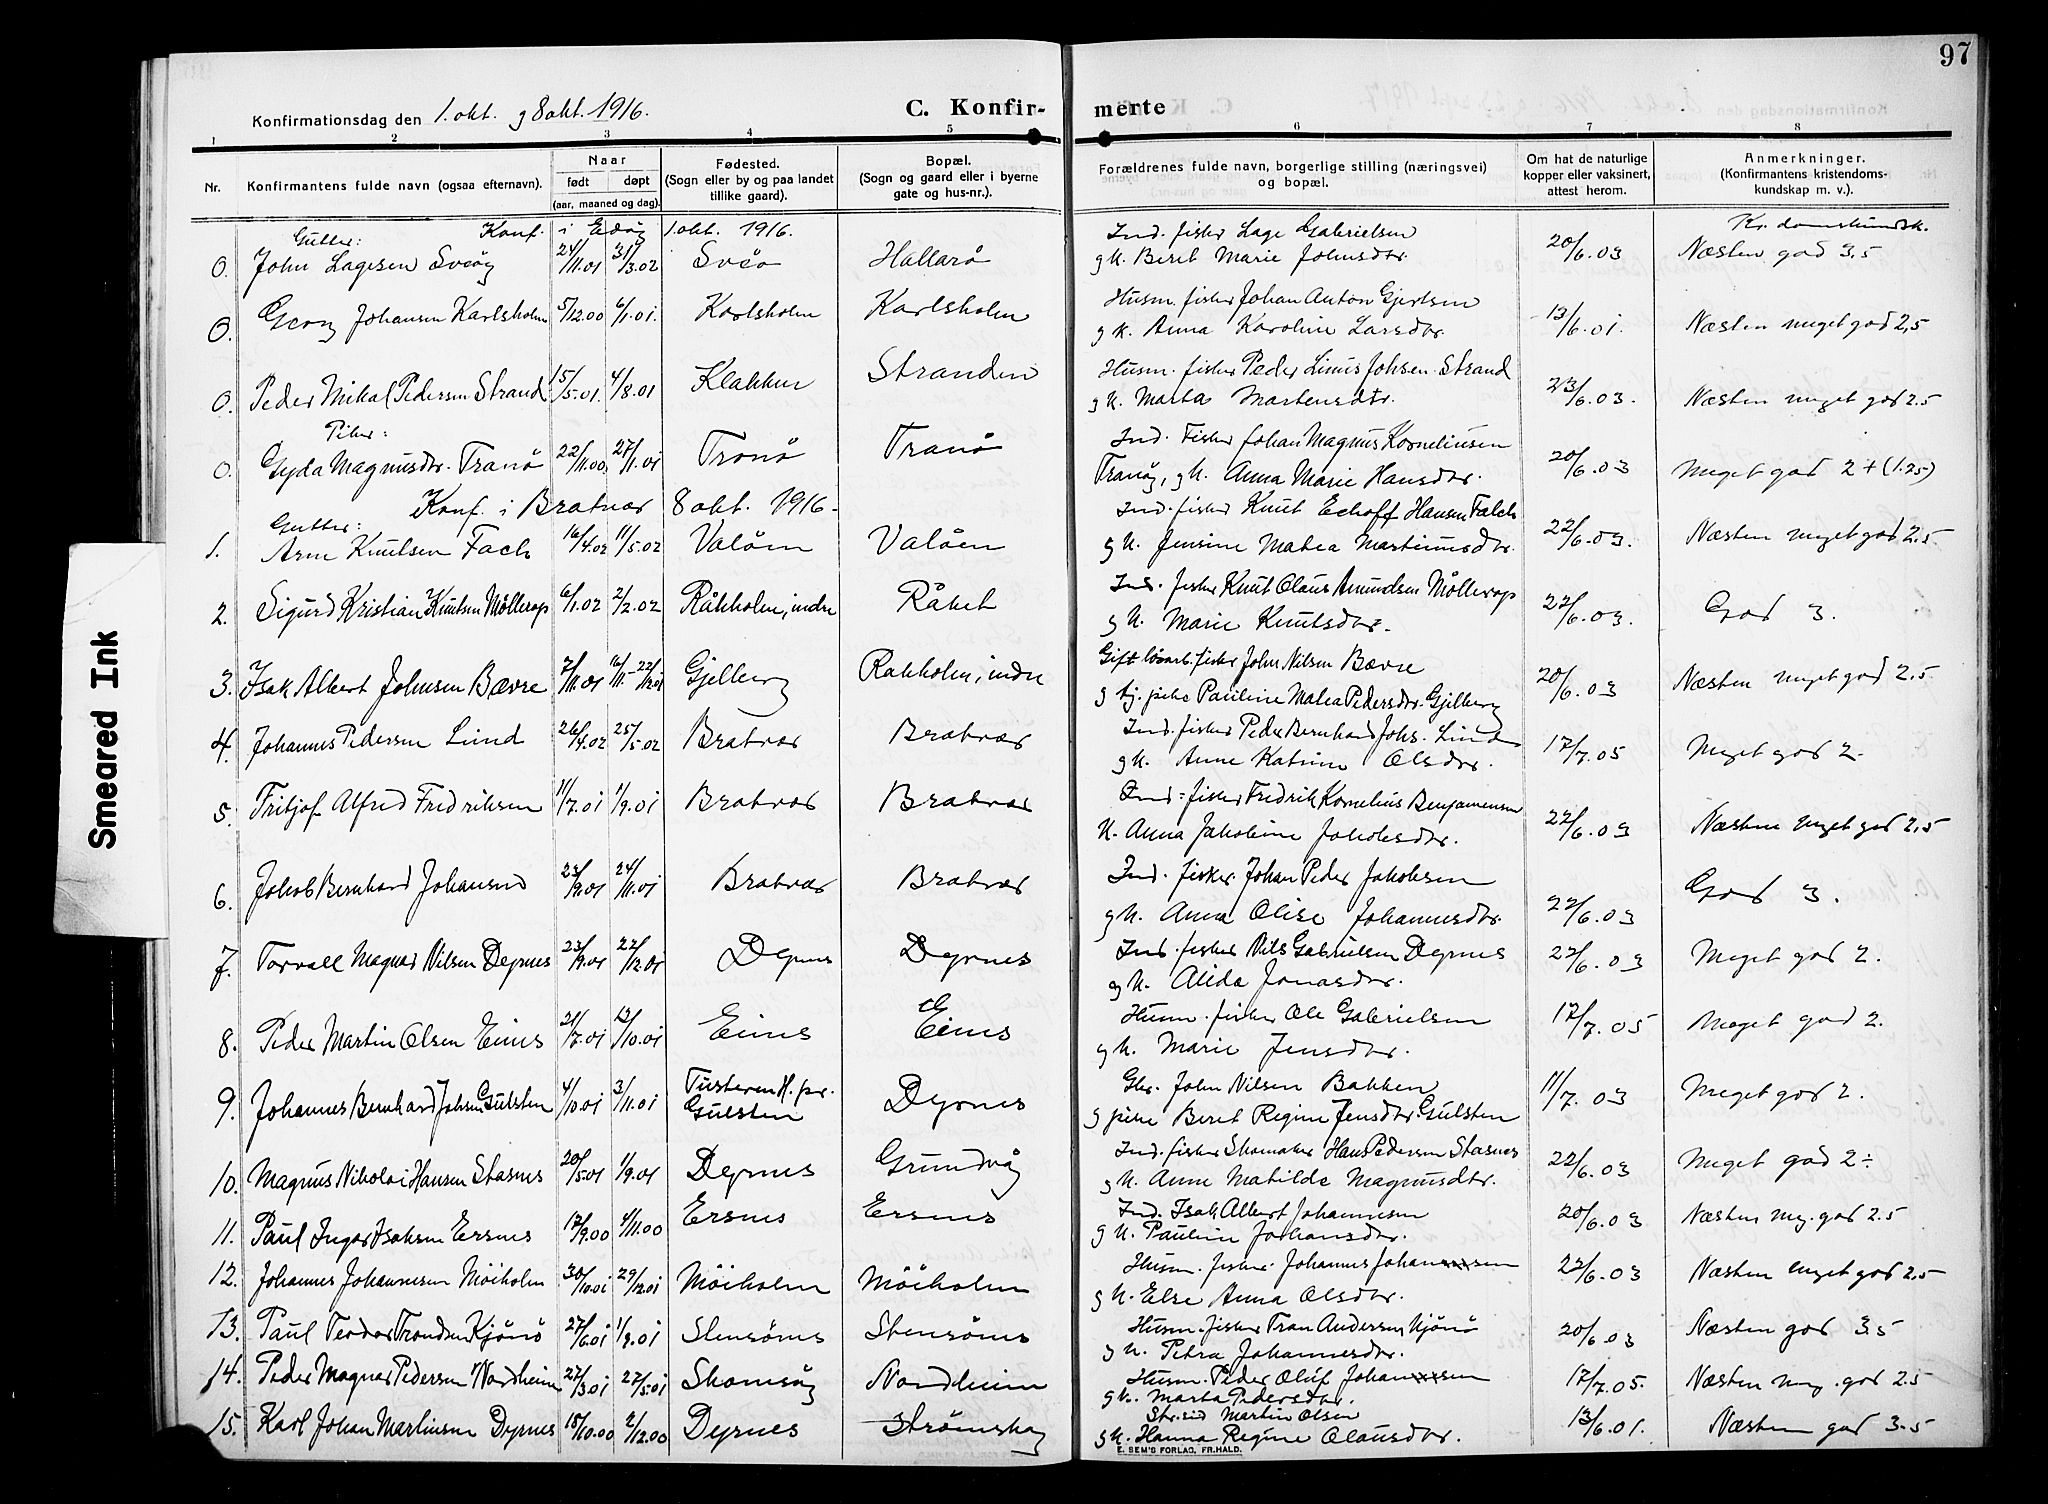 97
Konfirmationsdag den 1. okt. og 8 okt. 1916.
C. Konfirmerte
1 2 3 4 5 6 7 8
Nr.
Konfirmantens fulde navn (ogsaa efternavn).
Naar
født døpt
(aar, maaned og dag).
Fødested.
(Sogn eller by og paa landet
tillike gaard).
Bopæl.
(Sogn og gaard eller i byerne
gate og hus-nr.).
Forældrenes fulde navn, borgerlige stilling (næringsvei)
og bopæl.
Om hat de naturlige
kopper eller vaksinert,
attest herom.
Anmerkninger.
(Konfirmantens kristendoms-
kundskap m. v.).
Gutter: Konf. i Edøy 1 okt. 1916. Kr. domskundsk.
Ind. fisker Lage Gabrielsen
0. John Lagesen Sveøy 24/11.01 31/3.02 Sveø Hallarø 20/6.03 Næsten god 3.5
og k. Beret Marie Johnsdtr.
Husm. fisker Johan Anton Gjertsen
0. Georg Johansen Karlsholm 5/12.00 6/1.01. Karlsholm Karlsholm 13/6.01. Næsten meget god 2,5
og k. Anna Karoline Larsdtr.
Husm. fisker Peder Linus Johsen Strand
0. Peder Mikal Pedersen Strand 15/5.01. 4/8.01 Klakken Stranden 23/6.03. Næsten meget god 2.5
og k. Marta Martensdtr.
Piker:
Ind. Fisker Johan Magnus Korneliusen
0. Gyda Magnusdtr. Tranø 22/11.00, 27/1.01 Tranø Tranø 20/6.03 Meget god 2+ (1.25)
Tranøy, og k. Anna Marie Hansdtr.
Konf. i Bratvær 8 okt. 1916.
Gutter:
Ind. fisker Knut Echoff Hansen Falch
1. Arne Knutsen Fach 16/4.02 11/5.02 Valøen Valøen 22/6.03. Næsten meget god 2.5
og k. Jensine Matea Martinusdtr.
Ind. fisker Knut Olaus Amundsen Møllerop
2. Sigurd Kristian Knutsen Møllerop 6/1.02 2/2.02 Råkholm, indre Råket 22/6.03. God 3.
og k. Marie Knutsdtr.
Gift løsarb. fisker John Nilsen Bævre
3. Isak Albert Johnsen Bævre 7/11.01 16/11.-22/12.01 Gjelberg Rakholm, indre 20/6.03 Næsten meget god 2.5
og tj. pike Pauline Matea Pedersdtr. Gjelberg
Ind. fisker Peder Bernhard Johs. Lund
4. Johannes Pedersen Lund 26/4.02 25/5.02 Bratvær Bratvær 17/7.05 Meget god 2.
og k. Anne Katrine Olsdtr.
Ind. fisker Fredrik Kornelius Benjaminsen
5. Fritjof Alfred Fredriksen 11/7.01 1/9.01 Bratvær Bratvær 22/6.03 Næsten meget god 2,5
k. Anna Jakobine Jakobsdtr.
Ind. fisker Johan Peder Jakobsen
6. Jakob Bernhard Johansen 23/9.01 24/11.01 Bratvær Bratvær 22/6.03 God 3.
og k. Anna Olise Johannesdtr.
Ind. fisker Nils Gabrielsen Dyrnes
7. Torvall Magnar Nilsen Dyrnes 23/9.01 22/12.01 Dyrnes Dyrnes 22/6.03 Meget god 2.
og k. Alida Jonasdtr.
Husm. fisker Ole Gabrielsen
8. Peder Martin Olsen Eines 21/7.01 13/10.01 Eines Eines 17/7.05 Meget god 2.
og k. Marie Jensdtr.
Gbr. John Nilsen Bakken
9. Johannes Bernhard Johsen Gulsten 4/10.01 3/11.01 Tusteren H. pr. Gulsten Dyrnes 11/7.03 Meget god 2.
og pike Beret Regine Jensdtr. Gulsten
Ind. fisker Skomaker Hans Pedersen Stasnes
10. Magnus Nikolai Hansen Stasnes 20/5.01 1/9.01 Dyrnes Grundvåg 22/6.03 Meget god 2÷
og k. Anne Matilde Magnusdtr.
Ind. Isak Albert Johannesen
11. Paul Ingar Isaksen Ersnes 17/9.00 4/11.00 Ersnes Ersnes 20/6.03 Næsten meg. god 2.5
og k. Pauline Johansdtr.
Husm. fisker. Johannes Johansen
12. Johannes Johannesen Møiholm 30/10.01 29/12.01 Møiholm Møiholm 22/6.03 Næsten meget god 2,5
og k. Else Anna Olsdtr.
Husm. fisker Tran Andersen Kjønø
13. Paul Teodor Trondsen Kjønø 27/6.01 1/9.01 Stensønes Stensønes 20/6.03 Næsten god 3.5
og k. Petra Johannesdtr.
Husm. Peder Oluf Johansen
14. Peder Magnar Pedersen Nordheim 27/3.01 27/5.01 Skomsøy Nordheim 17/7.05. Næsten meg. god 2.5
og k. Marta Pedersdtr.
Str.sid Martin Olsen
15. Karl Johan Martinsen Dyrnes 15/10.00 2/12.00 Dyrnes Strømskag 13/6.01. Næsten god 3.5
og k. Hanna Regine Olausdtr.
E. SEM'S FORLAG, FR.HALD.
Smeared Ink